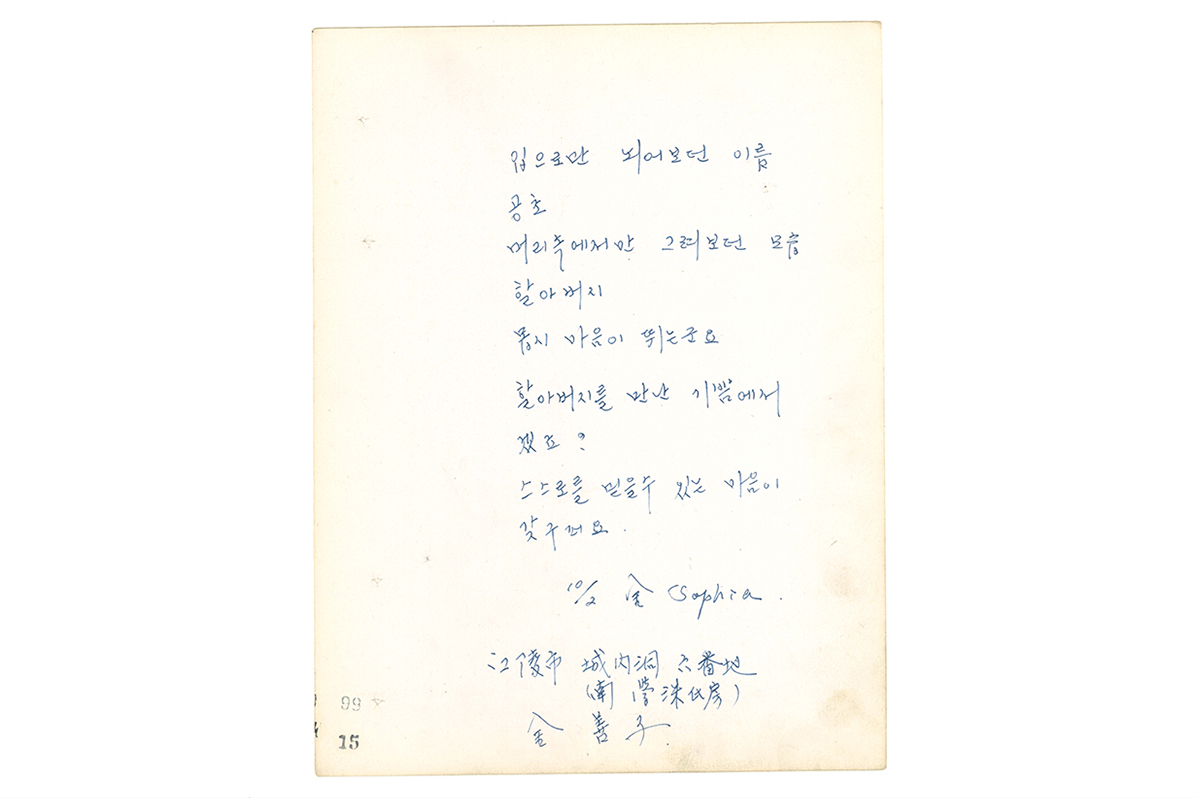 입으로만 뇌어보던 이름
공초
머리속에서만 그려보던 모습
할아버지
몹시 마음이 뛰는군요
할아버지를 만난 기쁨에서
겠죠?
스스로를 믿을수 있는 마음이
갖구퍼요.
10/2 金 Sophia.
江陵市 城内洞 六番地
(南 洋代房)
金 善子
99
15